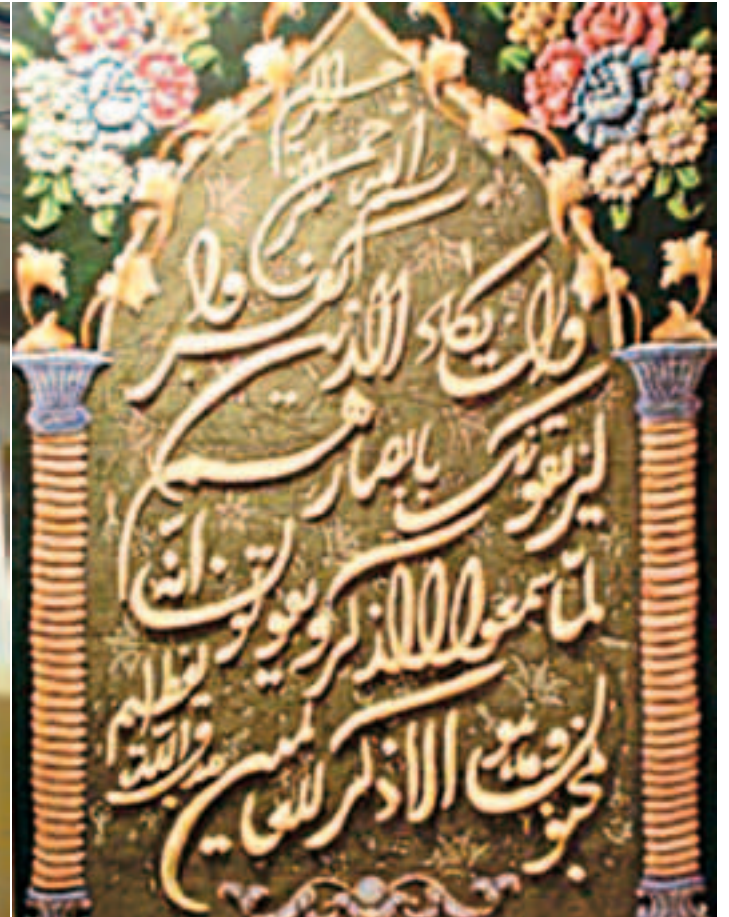 بسم الله الرحمن الرحیم
وان یکاد الذین کفروا
لیزلقونک بابصارهم
لما سمعوا الذکر و یقولون انه
لمجنون و ما هو الا ذکر للعالمین
صدق الله العظیم